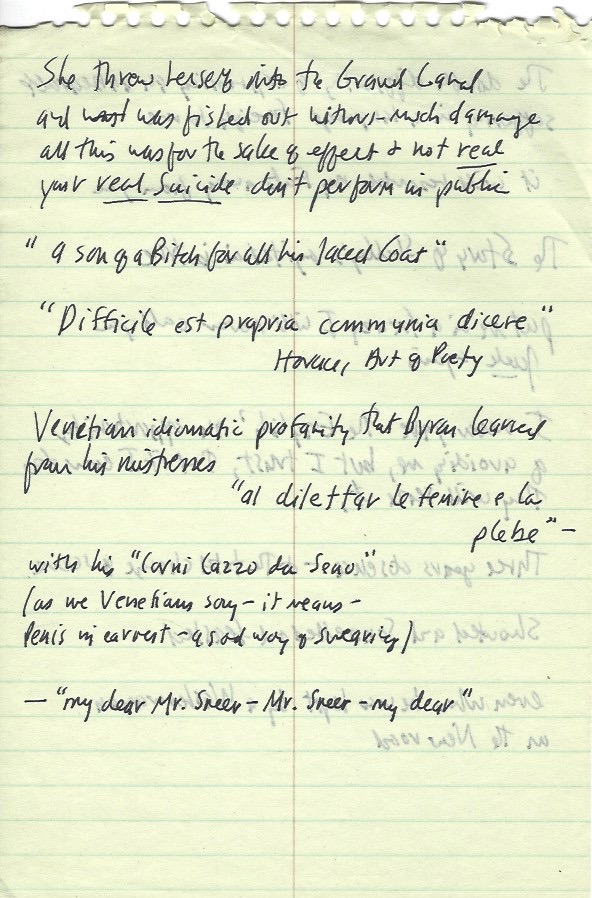 She threw herself into the Grand Canal
and was fished out without much damage
all this was for the sake of effect & not real
your real Suicide don't perform in public
"a son of a Bitch for all his laced Coat"
"Difficile est propria communia dicere"
Horace, Art of Poetry
Venetian idiomatic profanity that Byron learned
from his mistresses
"al dilettar le tenire e la
plebe" –
with his "Corni Cazzo da Seno"
(as we Venetians say – it means –
Penis in earnest – a good way of swearing)
– "my dear Mr. Sneer – Mr. Sneer – my dear"